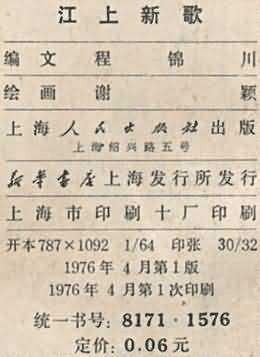 江上新歌
编文 程锦川
绘画 谢颖
上海人民出版社出版
上海绍兴路五号
新华书店上海发行所发行
上海市印刷十厂印刷
开本787×1092 1/64 印张 30/32
1976年4月第1版
1976年4月第1次印刷
统一书号：8171·1576
定价：0.06元